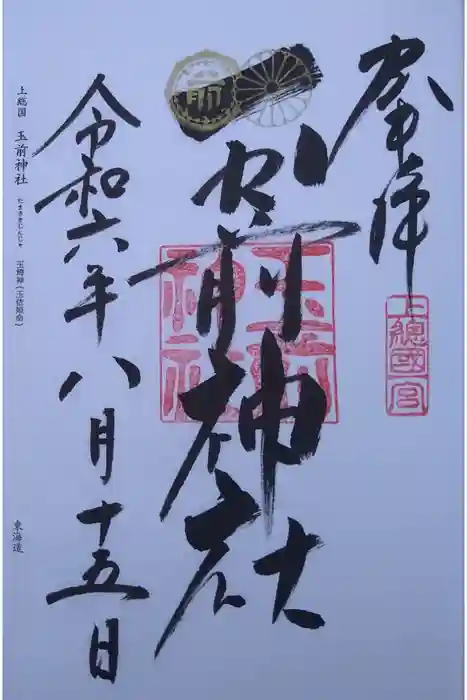 奉拝
上總國一宮
玉前神社
玉前神社
令和六年八月十五日
上総国 玉前神社 たまさきじんじゃ 玉﨑神(玉依姫命)
東海道